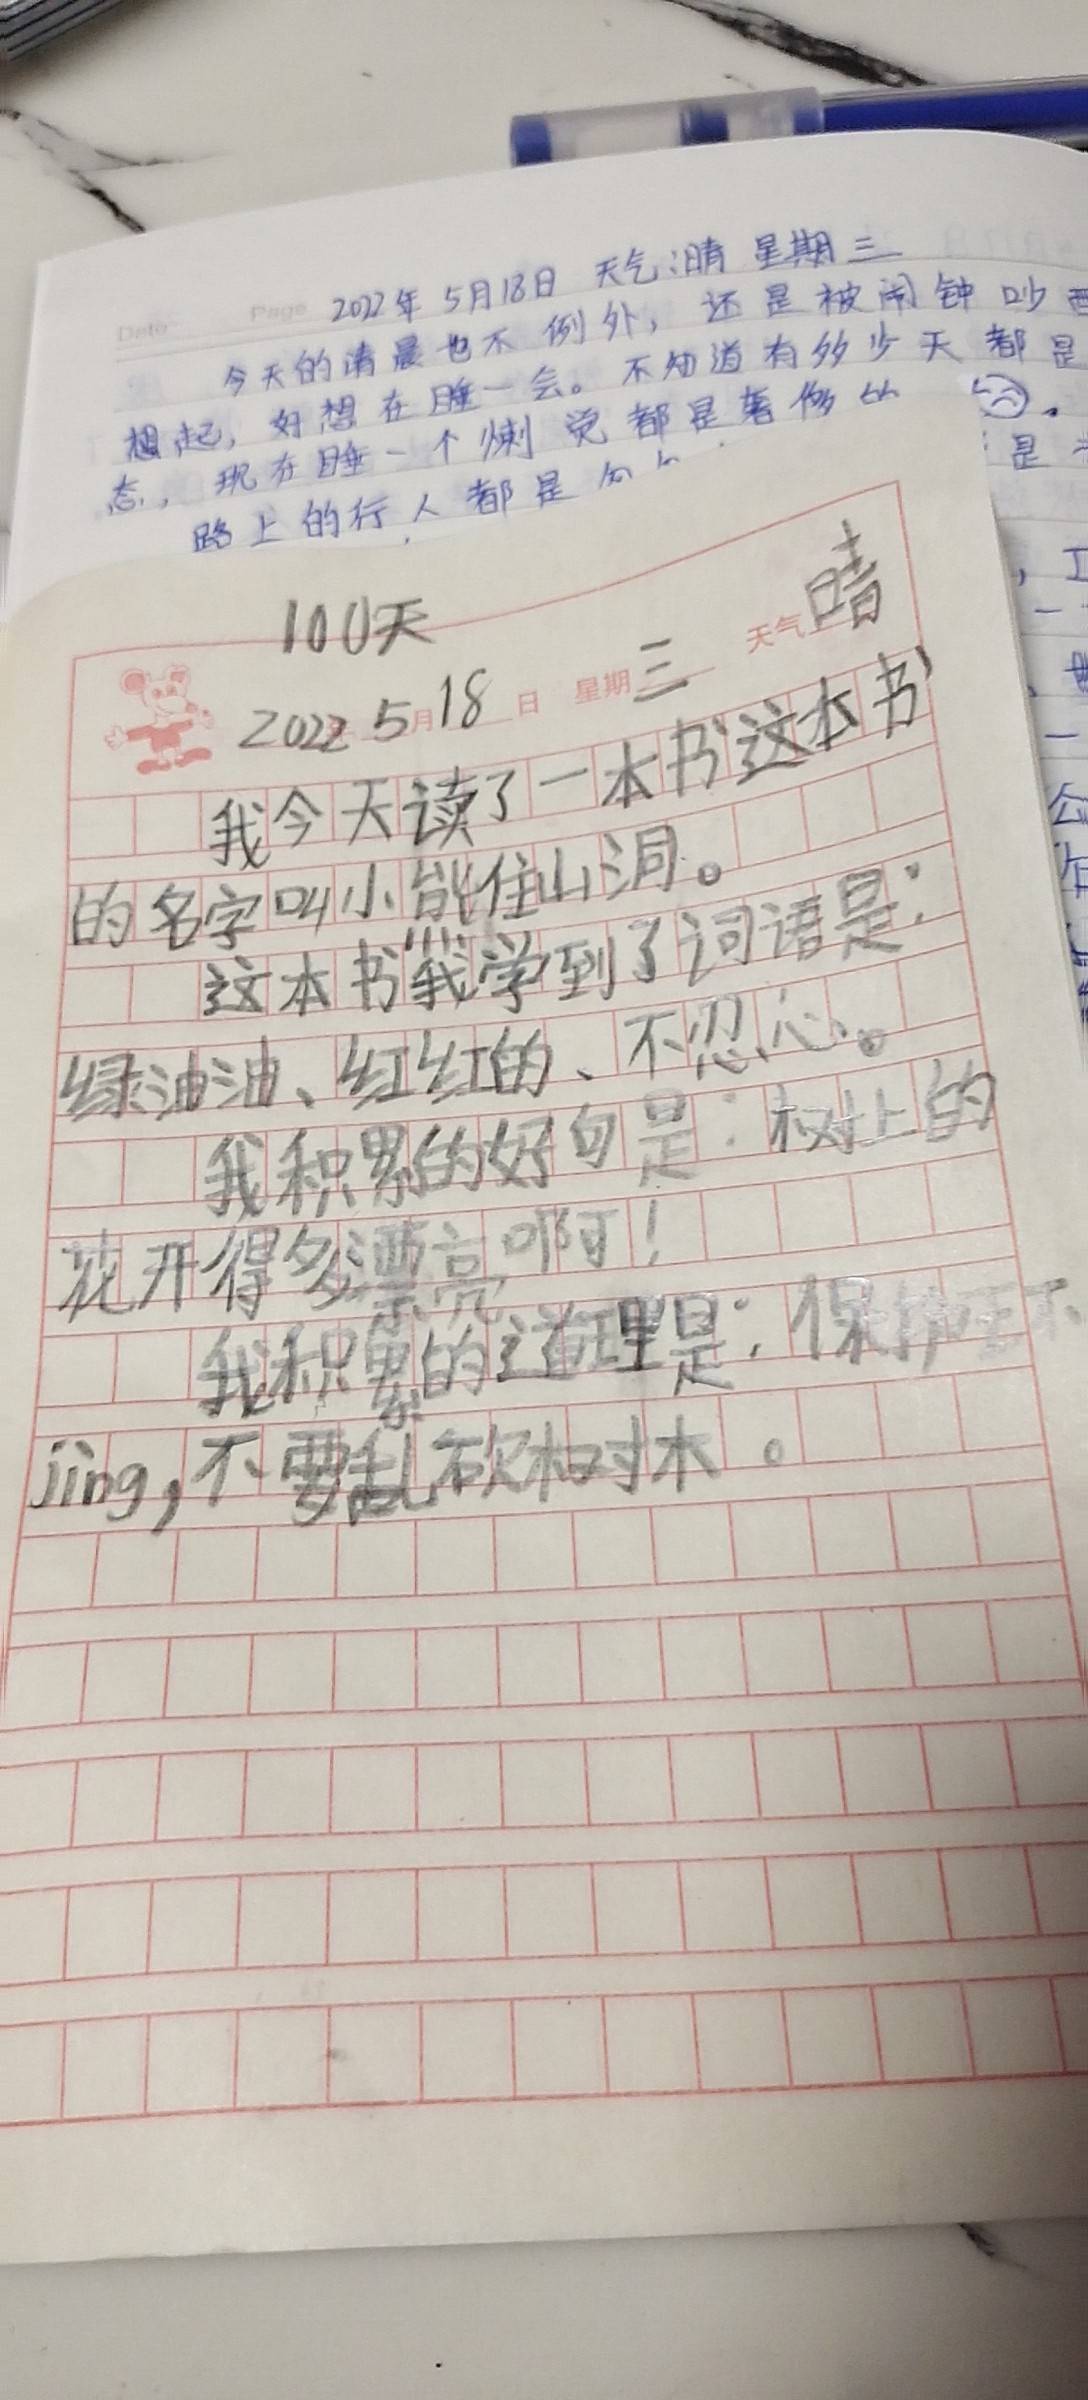 Date Page 2022年 5月18日 天气:晴 星期三
今天的清晨也不例外，还是被闹钟吵
想起，好想在睡一会。不知道有多少天都是
态，现在睡一个懒觉都是奢侈
是
路上的行人都是
100天
2022 5月18日 星期三 天气晴
我今天读了一本书这本书
的名字叫小能住山洞。
这本书我学到了词语是：
绿油油、红红的、不忍心。
我积累的好句是：树上的
花开得多漂亮啊！
我积累的道理是：保护
jìng，不要乱砍树木。